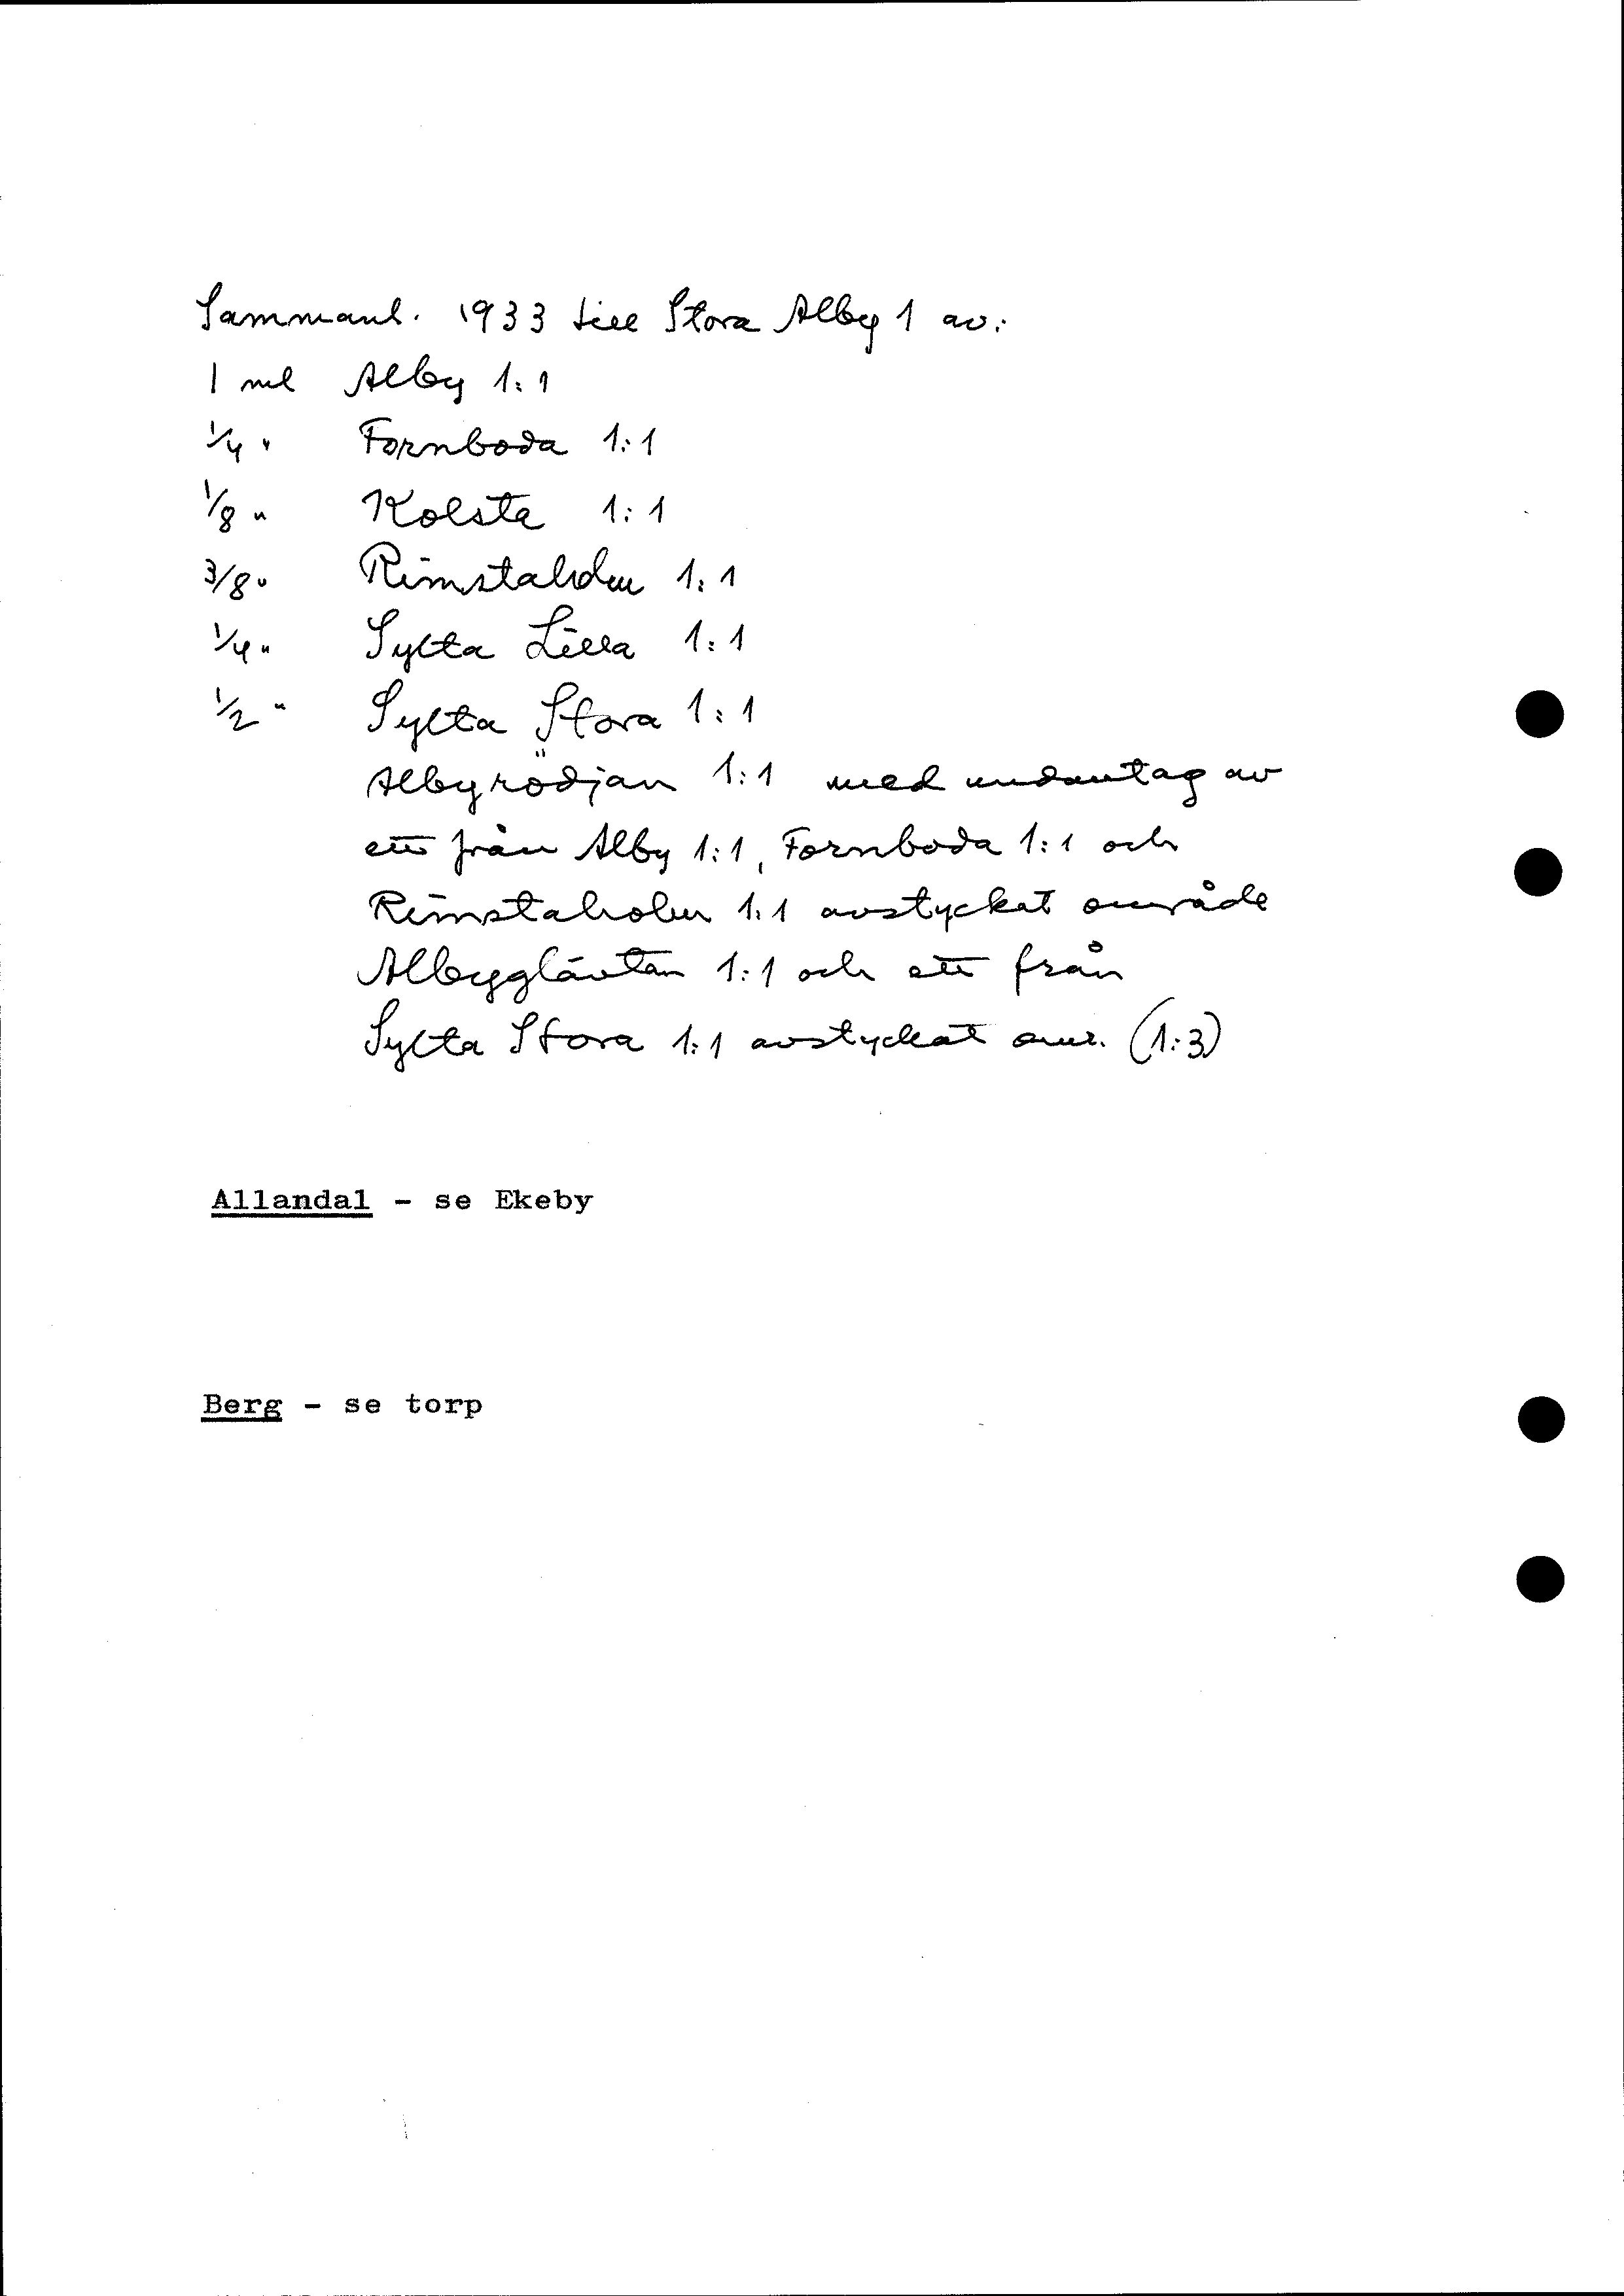 Sammanl. 1933 till Stora Alby 1 av:
1 ml Alby 1:1
1/4 " Fornboda 1:1
1/8 " Kolsta 1:1
3/8 " Rimstaholm 1:1
1/4 " Sylta Lilla 1:1
1/2 " Sylta Stora 1:1
Albyrödjan 1:1 med undantag av
ett från Alby 1:1, Fornboda 1:1 och
Rimstaholm 1:1 avstyckat område
Albygläntan 1:1 och ett från
Sylta Stora 1:1 avstyckat omr. (1:3)
Allandal - se Ekeby
Berg - se torp